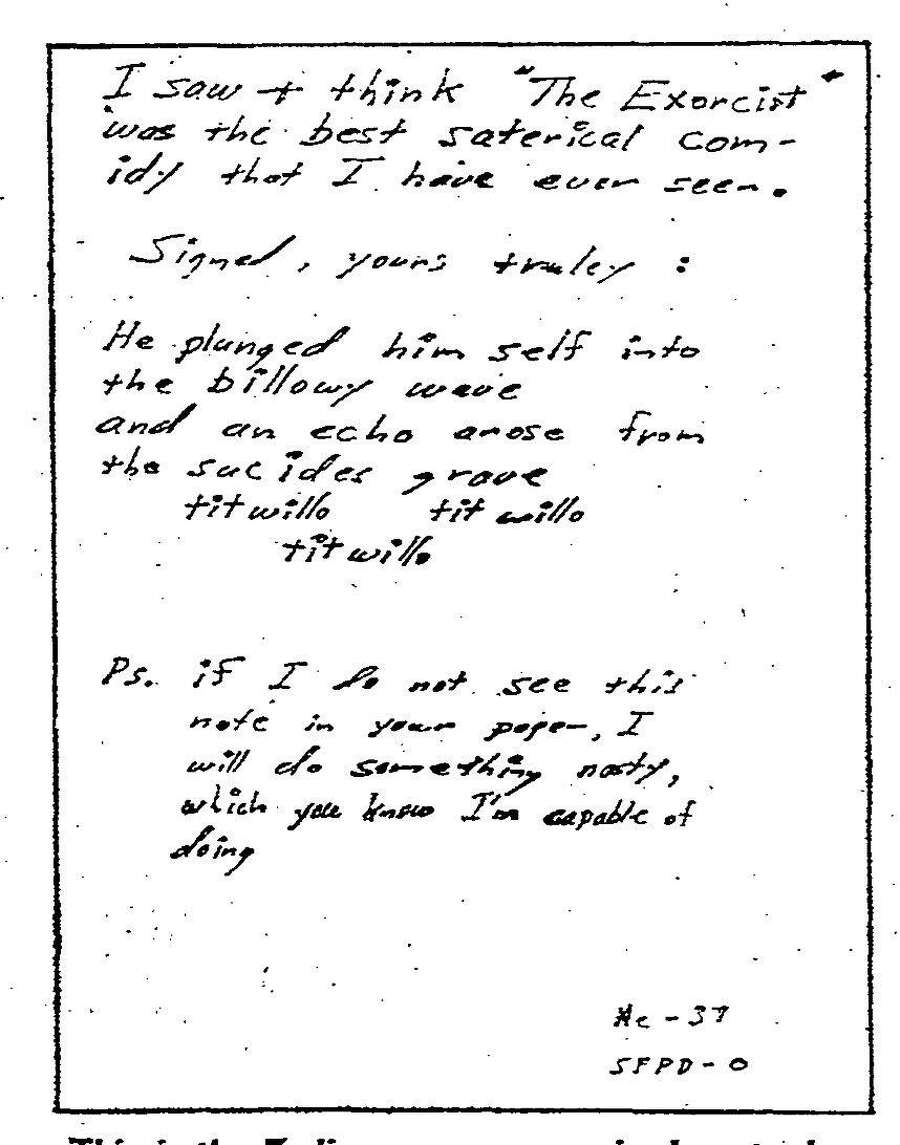 I saw + think "The Exorcist"
was the best saterical com-
idy that I have ever seen.
Signed, yours truley :
He plunged him self into
the billowy wave
and an echo arose from
the sucides grave
titwillo titwillo
titwillo
Ps. if I do not see this
note in your paper, I
will do something nasty,
which you know I'm capable of
doing
Me - 37
SFPD - 0
This is the